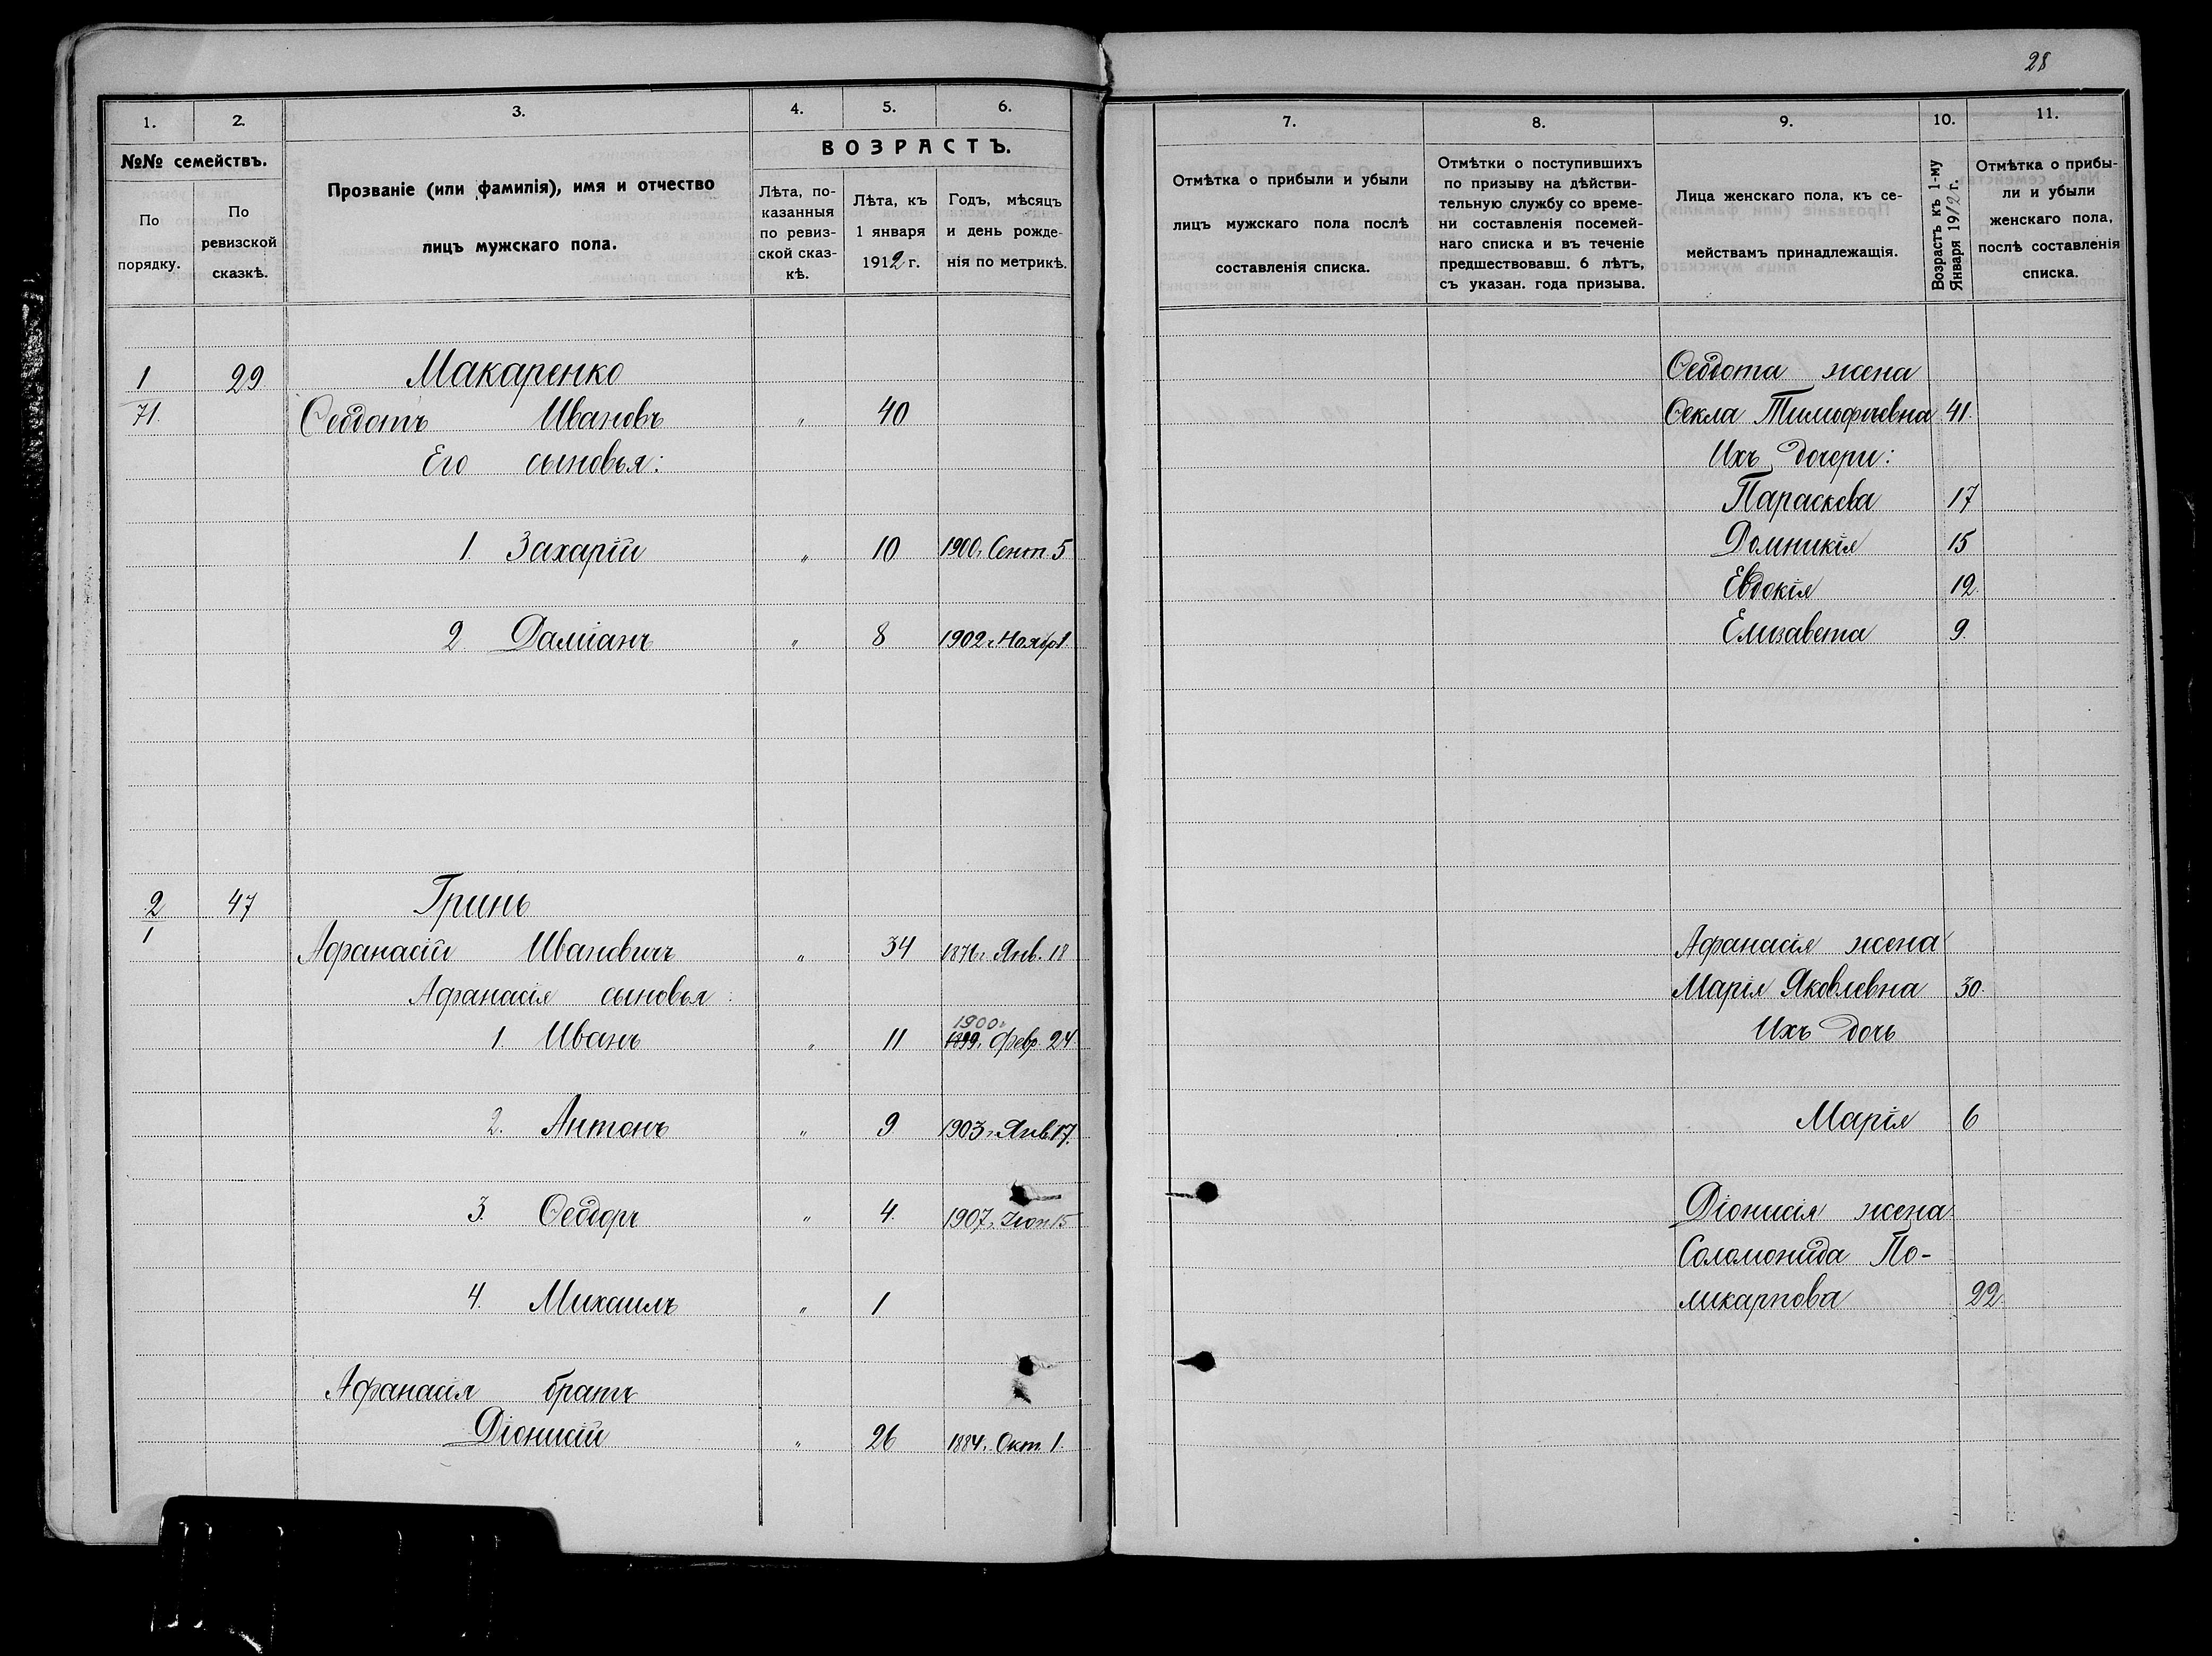 28
1.
2.
3.
4.
5.
6.
№№ семействъ.
По порядку.
По ревизской сказкѣ.
Прозваніе (или фамилія), имя и отчество
лицъ мужскаго пола.
ВОЗРАСТЪ.
Лѣта, по-
казанныя
по ревиз-
ской сказ-
кѣ.
Лѣта, къ
1 января
1912 г.
Годъ, мѣсяцъ
и день рожде-
нія по метрикѣ.
1 29 Макаренко
71. Ѳеодотъ Ивановъ " 40
Его сыновья:
1 Захарій " 10 1900 г. Сент. 5
2. Даміанъ " 8 1902 г. Нояб. 1.
2 47 Гринь
1
Афанасій Ивановичъ " 34 1876 г. Янв. 18
Афанасія сыновья:
1900 г
1. Иванъ " 11 1899 г. Февр. 24
2. Антонъ " 9 1903 г. Янв. 17.
3. Ѳеодоръ " 4. 1907 г. Іюн 15
4. Михаилъ " 1
Афанасія братъ
Діонисій " 26 1884 г. Окт. 1.
7.
8.
9.
10.
11.
Отмѣтка о прибыли и убыли
лицъ мужского пола послѣ
составленія списка.
Отмѣтки о поступившихъ
по призыву на дѣйстви-
тельную службу со време-
ни составленія посемей-
наго списка и въ теченіе
предшествовавш. 6 лѣтъ,
съ указан. года призыва.
Лица женскаго пола, къ се-
мействамъ принадлежащія.
Возрастъ къ 1-му
Января 1912 г.
Отмѣтка о прибы-
ли и убыли
женскаго пола,
послѣ составленія
списка.
Ѳеодота жена
Ѳекла Тимофѣевна 41.
Ихъ дочери:
Параскева 17
Домникія 15
Евдокія 12.
Елизавета 9.
Афанасія жена
Марія Яковлевна 30.
Ихъ дочь
Марія 6
Діонисія жена
Соломонида По-
ликарпова 22.